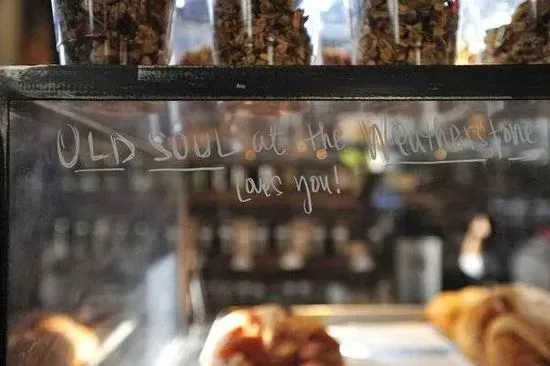 OLD SOUL at the Weatherstone
Loves you!